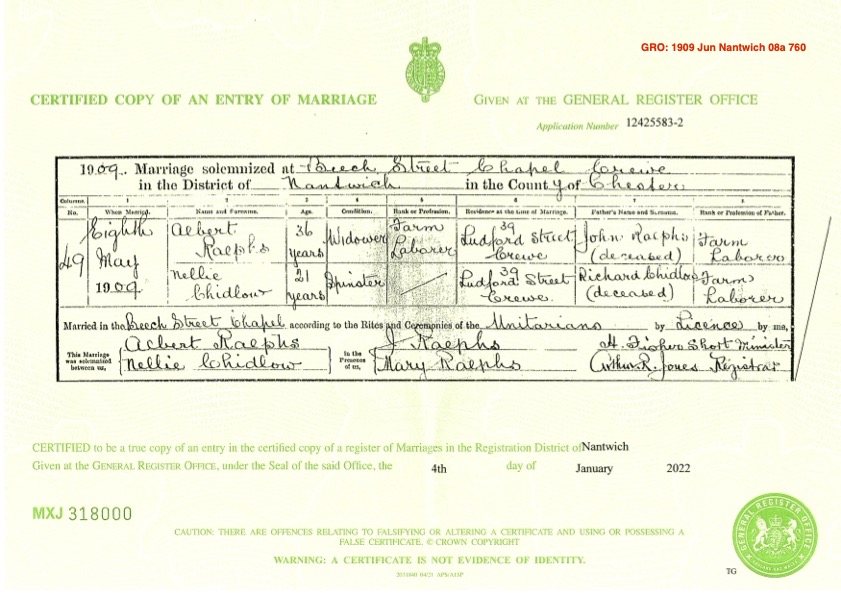 GRO: 1909 Jun Nantwich 08a 760
CERTIFIED COPY OF AN ENTRY OF MARRIAGE
GIVEN AT THE GENERAL REGISTER OFFICE
Application Number 12425583-2
1909. Marriage solemnized at Beech Street Chapel Crewe
in the District of Nantwich in the County of Chester
Columns. 1 2 3 4 5 6 7 8
No. When Married. Name and Surname. Age. Condition. Rank or Profession. Residence at the time of Marriage. Father's Name and Surname. Rank or Profession of Father.
49
Eighth
May
1909
Albert
Ralphs
36
years
Widower
Farm
Laborer
39
Ludford Street
Crewe
John Ralphs
(deceased)
Farm
Laborer
Nellie
Chidlow
21
years
Spinster
39
Ludford Street
Crewe.
Richard Chidlow
(deceased)
Farm
Laborer
Married in the Beech Street Chapel according to the Rites and Ceremonies of the Unitarians by Licence by me,
This Marriage was solemnized between us,
Albert Ralphs
Nellie Chidlow
In the Presence of us,
J Ralphs
Mary Ralphs
H. Fisher Short Minister
Arthur R. Jones Registrar
CERTIFIED to be a true copy of an entry in the certified copy of a register of Marriages in the Registration District of Nantwich
Given at the GENERAL REGISTER OFFICE, under the Seal of the said Office, the 4th day of January 2022
MXJ 318000
CAUTION: THERE ARE OFFENCES RELATING TO FALSIFYING OR ALTERING A CERTIFICATE AND USING OR POSSESSING A
FALSE CERTIFICATE. © CROWN COPYRIGHT
WARNING: A CERTIFICATE IS NOT EVIDENCE OF IDENTITY.
GENERAL REGISTER OFFICE
TG